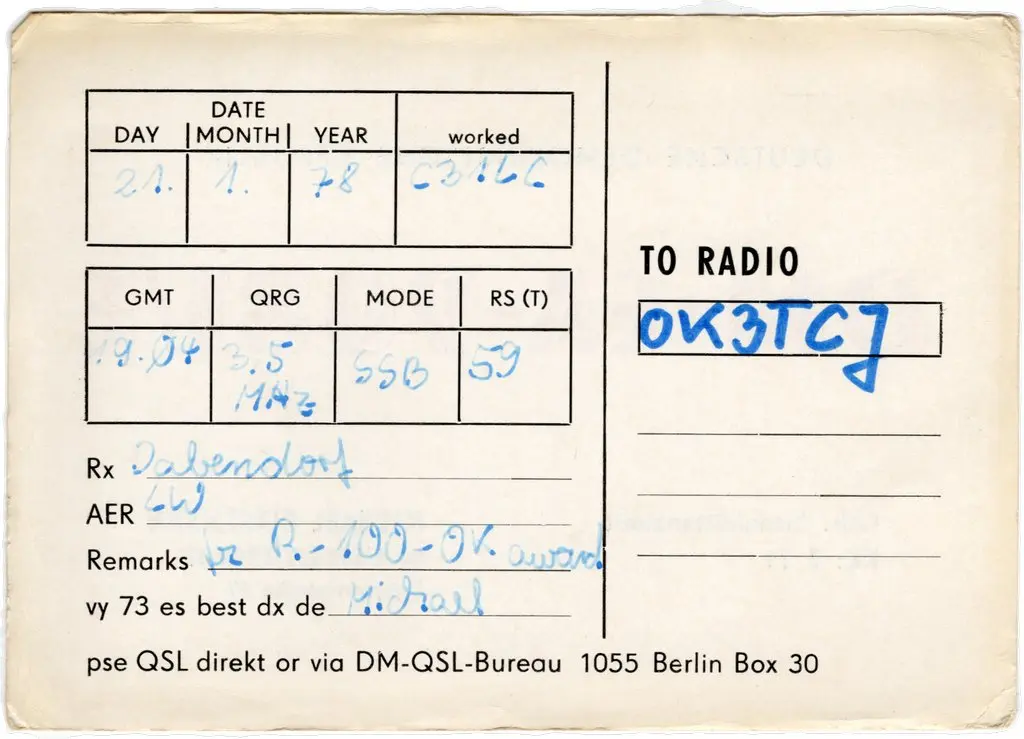 DATE
DAY MONTH YEAR worked
21. 1. 78 C31LC
GMT QRG MODE RS (T)
19.04 3.5 MHz SSB 59
TO RADIO
OK3TCJ
Rx Dabendorf
AER LW
Remarks fr R.-100-OK award
vy 73 es best dx de Michael
pse QSL direkt or via DM-QSL-Bureau 1055 Berlin Box 30